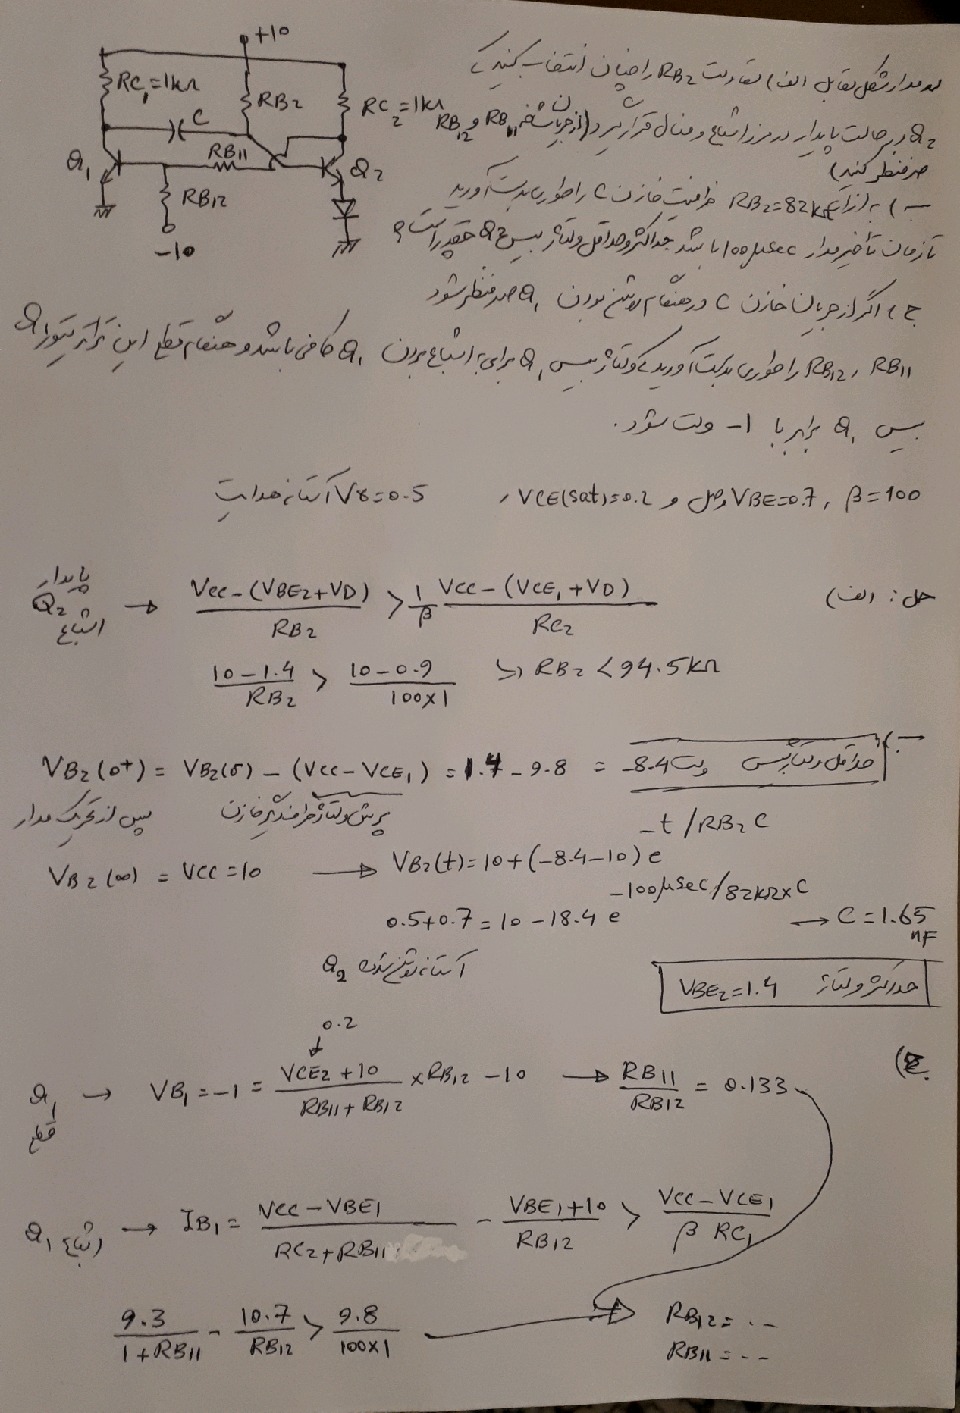 +10
RC1=1kΩ
RB2
RC2=1kΩ
C
Q1
RB11
Q2
RB12
-10
در مدار شکل مقابل الف) مقاومت RB2 را چنان انتخاب کنید که
Q2 در حالت پایدار در مرز اشباع و فعال قرار گیرد (از جریان شاخه RB11 و RB12
صرفنظر کنید)
ب) به ازای RB2=82kΩ ظرفیت خازن C را طوری بدست آورید
تا زمان تأخیر مدار 100μsec باشد حداکثر و حداقل ولتاژ بیس Q2 چقدر است؟
ج) اگر از جریان خازن C در هنگام روشن بودن Q1 صرفنظر شود
RB11 و RB12 را طوری بدست آورید که ولتاژ بیس Q1 برای اشباع بودن Q1 کافی باشد و هنگام قطع این ترانزیستور Q1
بیس Q1 برابر با -1 ولت شود.
β=100 , VBE=0.7 وصل و VCE(sat)=0.2 , Vγ=0.5 آستانه هدایت
حل: الف)
پایدار
Q2
اشباع
→ Vcc-(VBE2+VD) / RB2 > 1/β Vcc-(VCE1+VD) / RC2
10-1.4 / RB2 > 10-0.9 / 100x1 → RB2 <94.5kΩ
ب)
VB2(0+) = VB2(0-) - (Vcc-VCE1) = 1.4-9.8 = -8.4 ولت حداقل ولتاژ بیس
پس از تحریک مدار
پرش ولتاژ خازن
VB2(∞) = Vcc=10 → VB2(t)=10+(-8.4-10)e -t/RB2C
0.5+0.7=10-18.4 e -100μsec/82kΩxC → C=1.65 nF
آستانه روشن شدن Q2
حداکثر ولتاژ VBE2=1.4
ج)
0.2
Q1 قطع → VB1=-1= VCE2+10 / RB11+RB12 xRB12 -10 → RB11 / RB12 = 0.133
Q1 اشباع → IB1= Vcc-VBE1 / RC2+RB11 - VBE1+10 / RB12 > Vcc-VCE1 / β RC1
9.3 / 1+RB11 - 10.7 / RB12 > 9.8 / 100x1 → RB12= ..
RB11= --